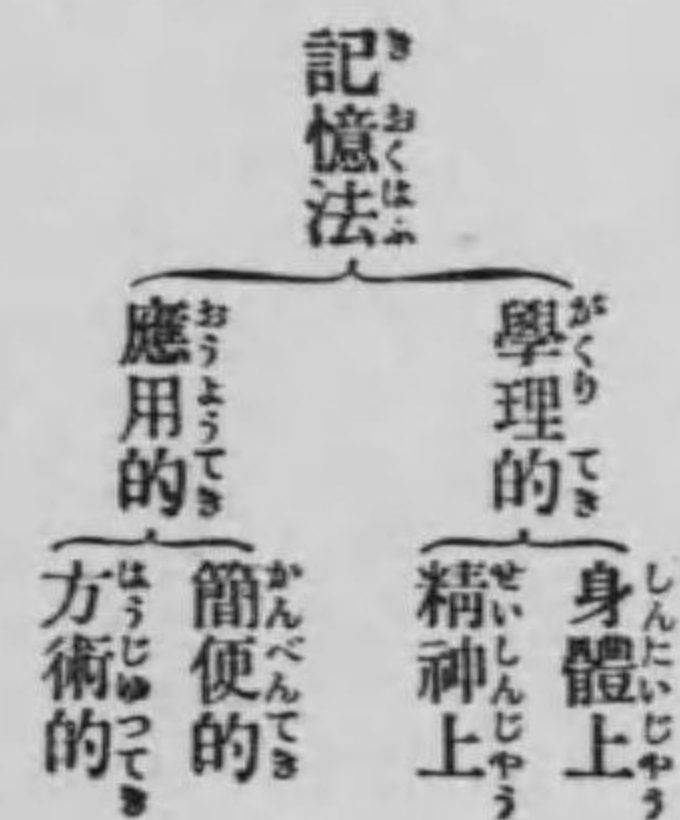 記憶法
きおくはふ
學理的
がくりてき
身體上
しんたいじやう
精神上
せいしんじやう
應用的
おうようてき
簡便的
かんべんてき
方術的
はうじゆつてき